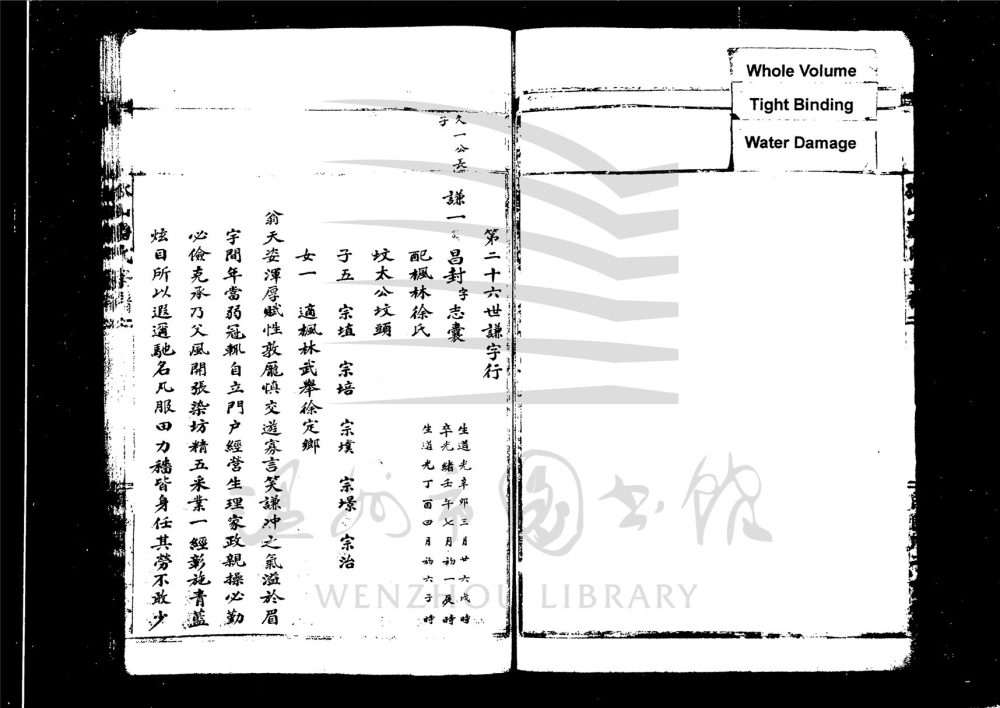 Whole Volume
Tight Binding
Water Damage
第二十六世謙字行
久一公長
子
謙一
昌封字志囊
生道光辛卯三月廿六戌時
卒光緒壬午七月初一辰時
配楓林徐氏
生道光丁酉四月初六子時
坟太公坟頭
子五 宗埴 宗培 宗墣 宗墂 宗治
女一 適楓林武舉徐定鄉
翁天姿渾厚賦性敦龐慎交遊寡言笑謙冲之氣溢於眉
宇間年當弱冠輒自立門户經營生理家政親操必勤
必儉克承乃父風開張染坊精五采業一經彰施青藍
炫目所以遐邇馳名凡服田力穡皆身任其勞不敢少
温州市图书馆
WENZHOU LIBRARY